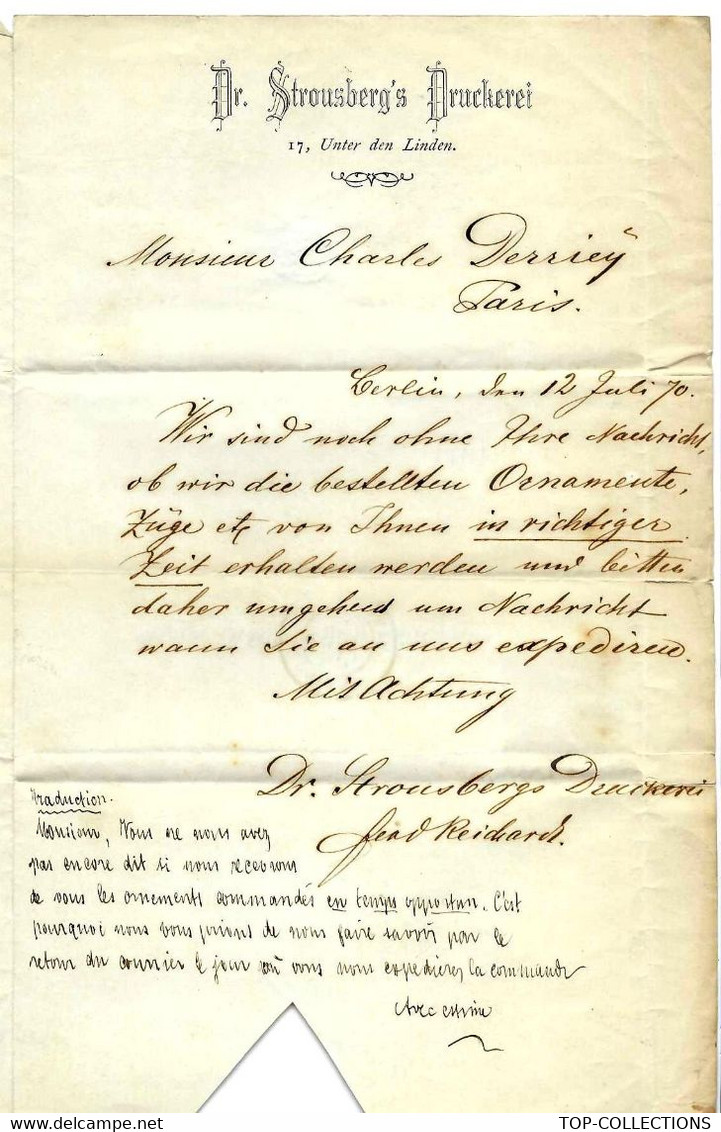 Dr. Strousberg's Druckerei
17, Unter den Linden.
Monsieur Charles Derriey
Paris.
Berlin, den 12 Juli 70.
Wir sind noch ohne Ihre Nachricht,
ob wir die bestellten Ornamente,
Züge etc von Ihnen in richtiger
Zeit erhalten werden und bitten
daher umgehend um Nachricht
wann Sie an uns expediren.
Mit Achtung
Dr. Strousbergs Druckerei
Reichardt.
Traduction.
Monsieur, Vous ne nous avez
pas encore dit si nous recevrons
de vous les ornements commandés en temps opportun. C'est
pourquoi nous vous prions de nous faire savoir par le
retour du courrier le jour où vous nous expédierez la commande
Avec estime
delcampe.net
TOP-COLLECTIONS